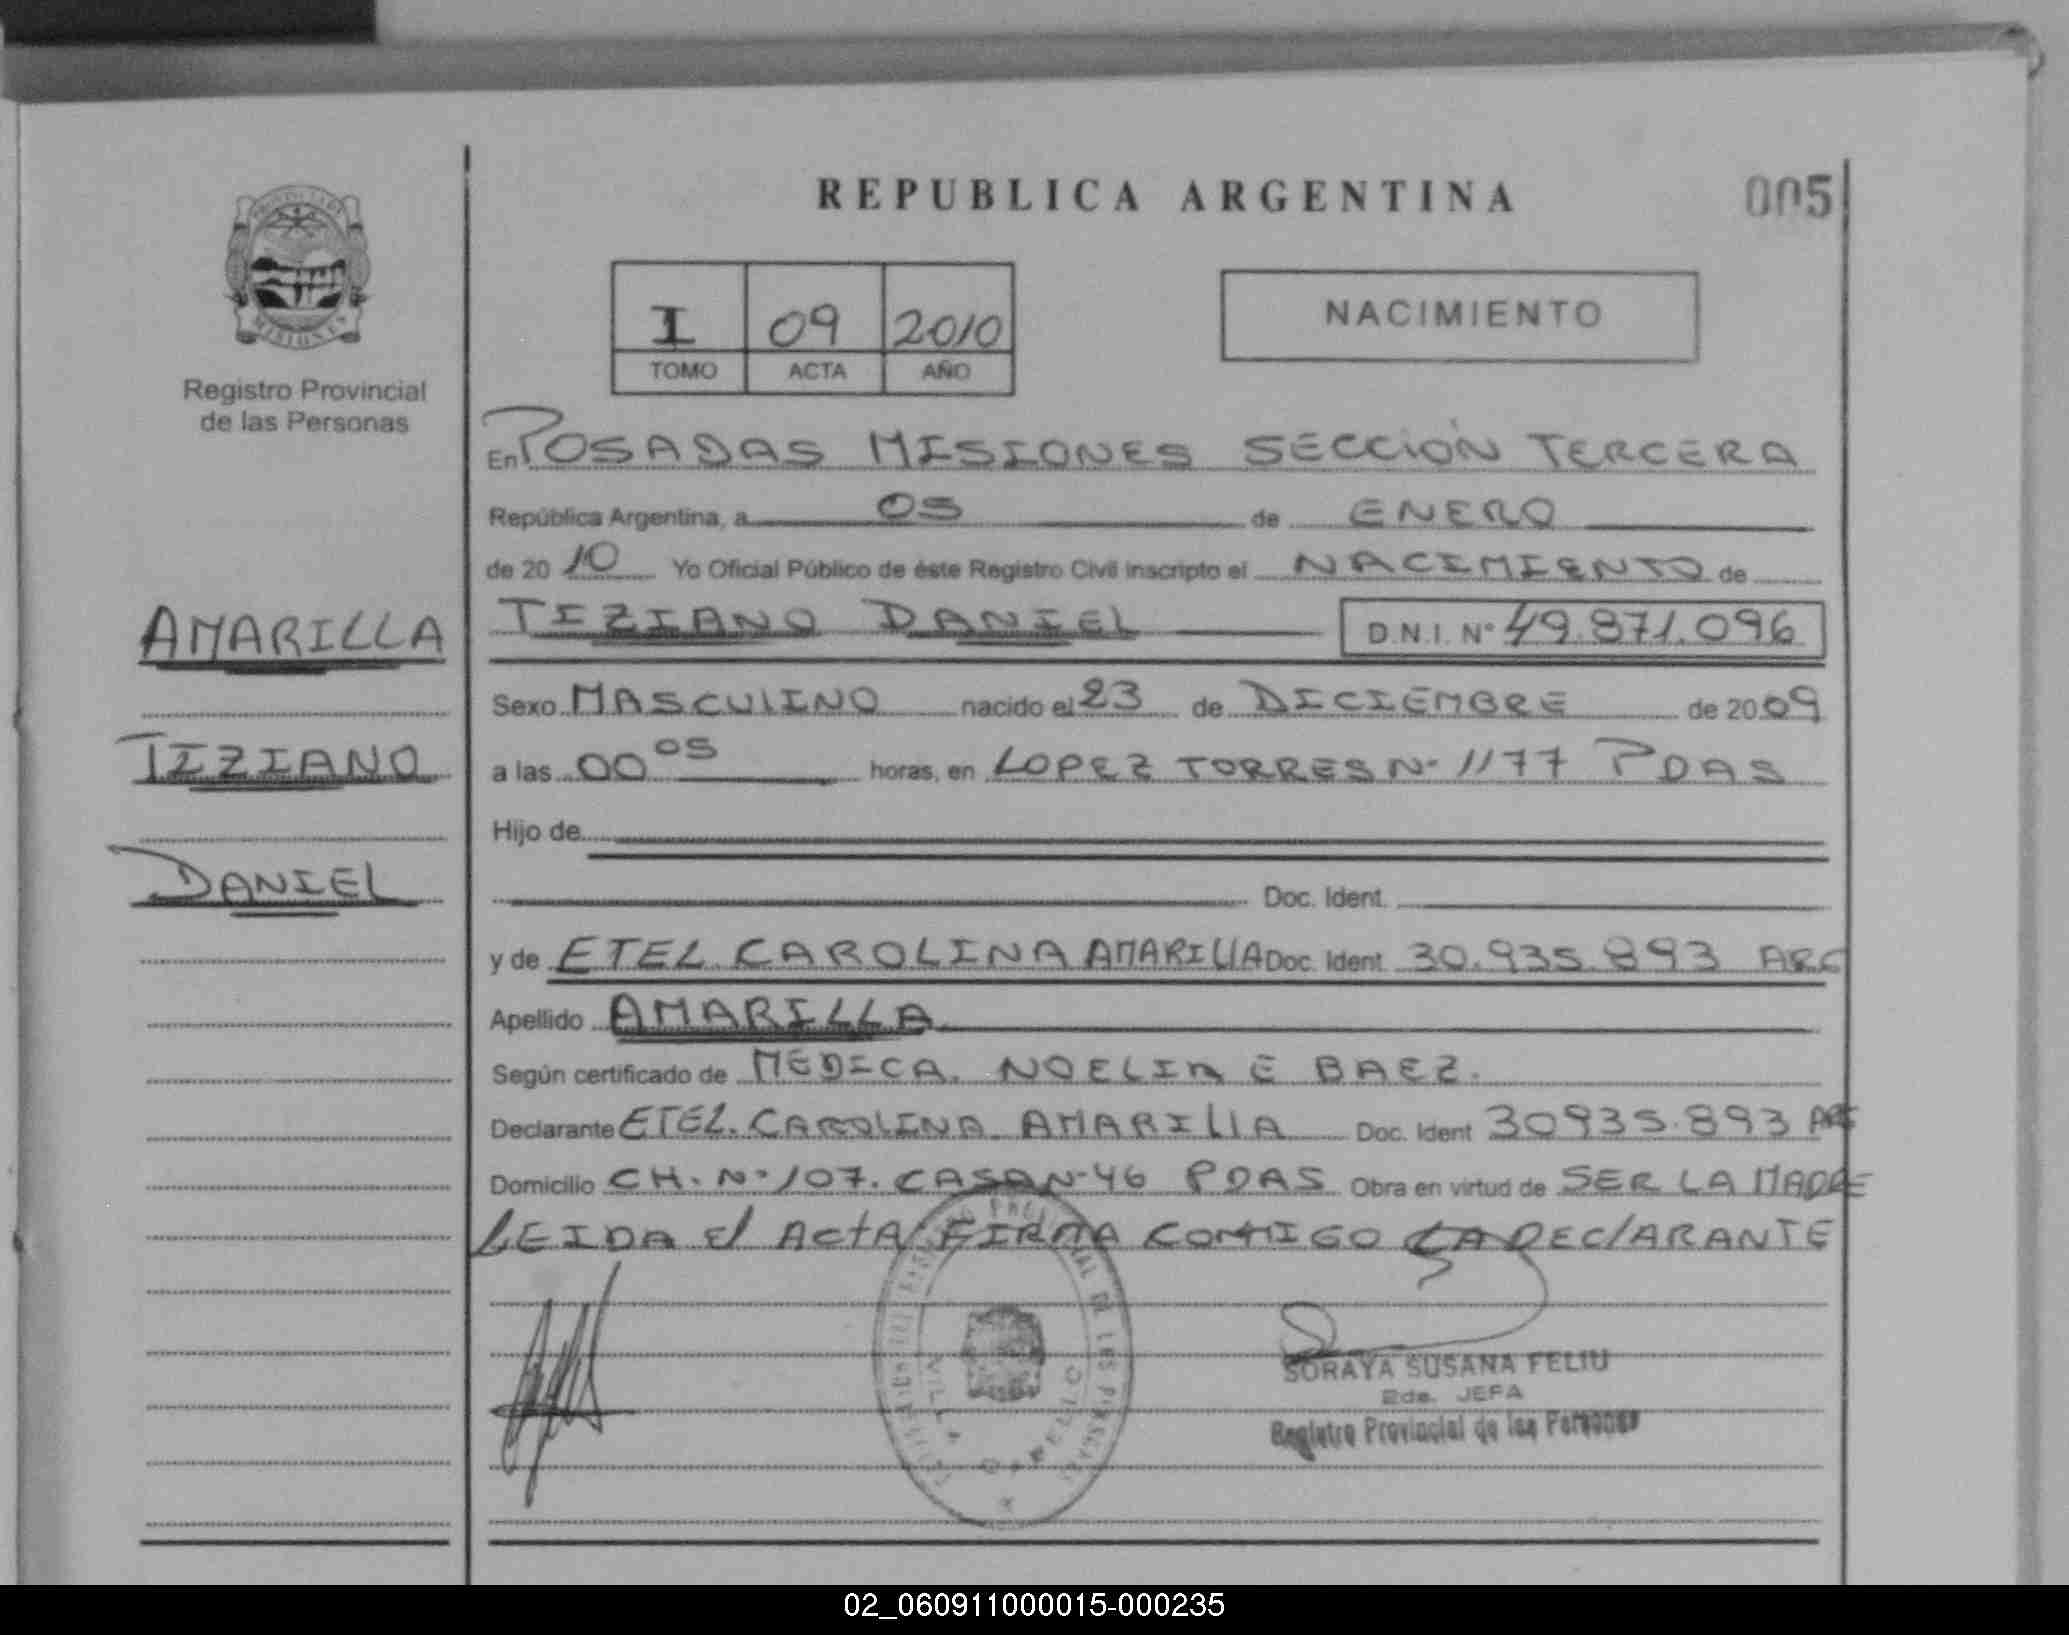 REPUBLICA ARGENTINA
005
PROVINCIA DE
MISIONES
Registro Provincial
de las Personas
I 09 2010
TOMO ACTA AÑO
NACIMIENTO
En POSADAS MISIONES SECCIÓN TERCERA
República Argentina, a 05 de ENERO
de 20 10 Yo Oficial Público de éste Registro Civil inscripto el NACIMIENTO de
AMARILLA
TIZIANO DANIEL D.N.I. Nº 49.871.096
Sexo MASCULINO nacido el 23 de DICIEMBRE de 20 09
TIZIANO
a las 00 05 horas, en LOPEZ TORRES Nº 1177 PDAS
Hijo de
DANIEL
Doc. Ident.
y de ETEL CAROLINA AMARILLA Doc. Ident. 30.935.893 ARG
Apellido AMARILLA
Según certificado de MEDICA. NOELIA E BAEZ.
Declarante ETEL. CAROLINA AMARILLA Doc. Ident 30935.893 ARG
Domicilio CH. Nº 107. CASA Nº 46 PDAS Obra en virtud de SER LA MADRE
LEIDA el ACTA FIRMA CONMIGO LA DEClARANTE
VILLA CABELLO
SORAYA SUSANA FELIU
2da. JEFA
Registro Provincial de las Personas
02_060911000015-000235